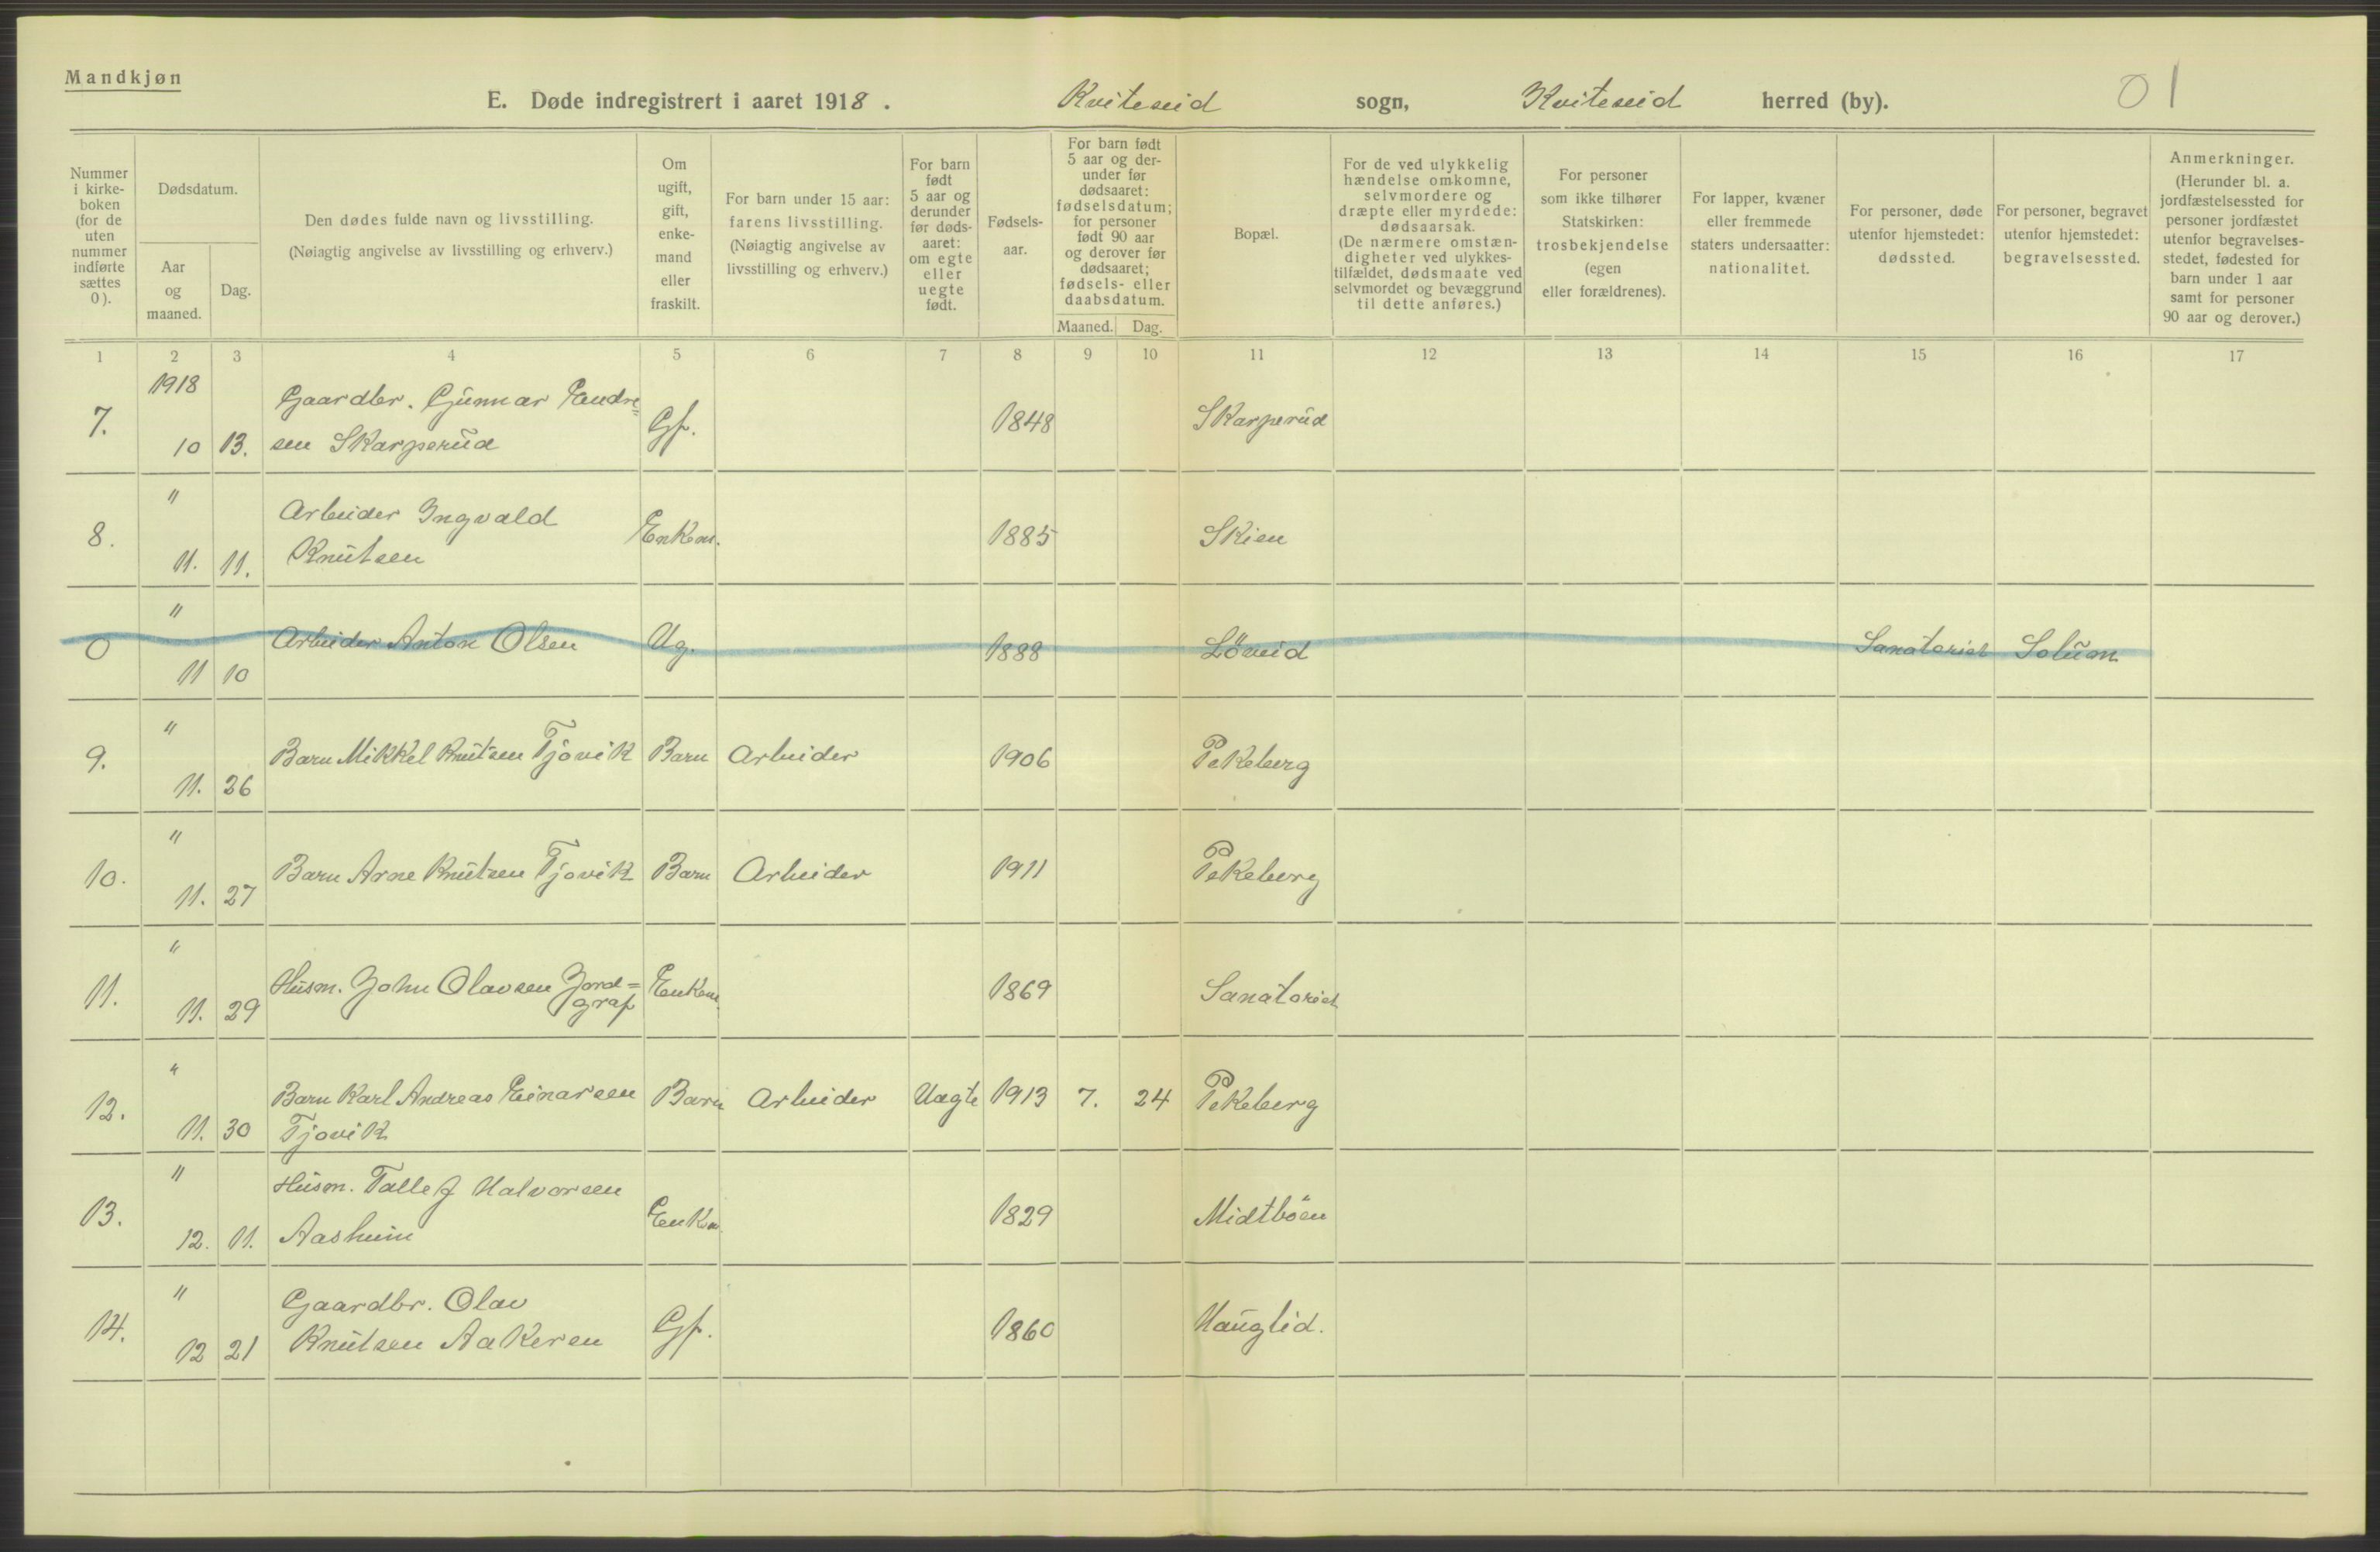 Mandkjøn
E. Døde indregistrert i aaret 1918. Kviteseid sogn, Kviteseid herred (by). 01
Nummer i kirke-boken (for de uten nummer indførte sættes 0).
Dødsdatum.
Aar og maaned.
Dag.
Den dødes fulde navn og livsstilling.
(Nøiagtig angivelse av livsstilling og erhverv.)
Om ugift, gift, enke-mand eller fraskilt.
For barn under 15 aar: farens livsstilling.
(Nøiagtig angivelse av livsstilling og erhverv.)
For barn født 5 aar og derunder før døds-aaret: om egte eller uegte født.
Fødsels-aar.
For barn født 5 aar og der-under før dødsaaret: fødselsdatum; for personer født 90 aar og derover før dødsaaret; fødsels- eller daabsdatum.
Maaned. Dag.
Bopæl.
For de ved ulykkelig hændelse omkomne, selvmordere og dræpte eller myrdede: dødsaarsak.
(De nærmere omstæn-digheter ved ulykkes-tilfældet, dødsmaate ved selvmordet og bevæggrund til dette anføres.)
For personer som ikke tilhører Statskirken: trosbekjendelse (egen eller forældrenes).
For lapper, kvæner eller fremmede staters undersaatter: nationalitet.
For personer, døde utenfor hjemstedet: dødssted.
For personer, begravet utenfor hjemstedet: begravelsessted.
Anmerkninger.
(Herunder bl. a. jordfæstelsessted for personer jordfæstet utenfor begravelses-stedet, fødested for barn under 1 aar samt for personer 90 aar og derover.)
1 2 3 4 5 6 7 8 9 10 11 12 13 14 15 16 17
1918
7. 10 13. Gaardbr. Gunnar Endre=
sen Skarperud Gf. 1848 Skarperud
"
8. 11. 11. Arbeider Ingvald
Knutsen Enkem. 1885 Skien
"
0 11 10 Arbeider Anton Olsen Ug. 1888 Löveid Sanatoriet Solum
"
9. 11. 26 Barn Mikkel Knutsen Tjovik Barn Arbeider 1906 Pekeberg
"
10. 11. 27 Barn Arne Knutsen Tjovik Barn Arbeider 1911 Pekeberg
"
11. 11. 29 Husm. John Olavsen Jord=
graf Enkem. 1869 Sanatoriet
"
12. 11. 30 Barn Karl Andreas Einarsen
Tjovik Barn Arbeider Uegte 1913 7. 24 Pekeberg
"
13. 12. 11. Husm. Tallef Halvorsen
Aasheim Enkem. 1829 Midtböen
"
14. 12 21 Gaardbr. Olav
Knutsen Aakeren Gf. 1860 Hauglid.